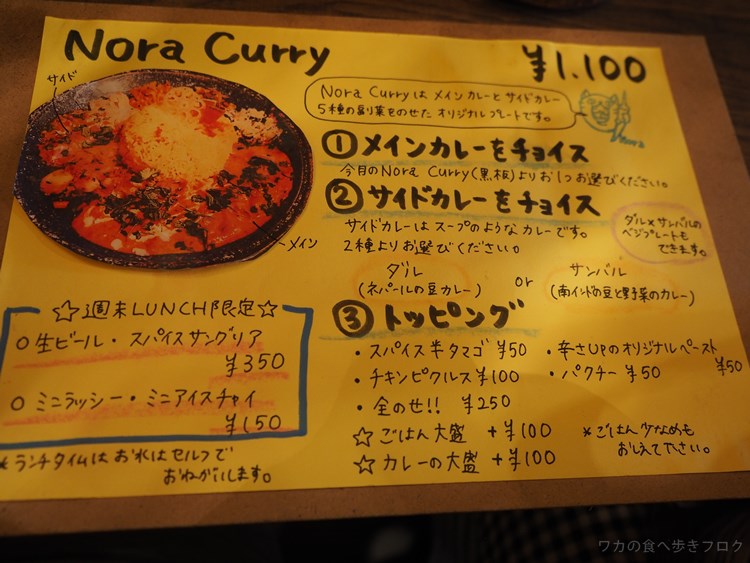 Nora Curry
¥1.100
サイド
メイン
Nora Curryは メインカレーと サイドカレー
5種の副菜をのせた オリジナルプレートです。
Nora
①メインカレーをチョイス
今月のNora Curry(黒板)よりお1つお選びください。
②サイドカレーをチョイス
サイドカレーは スープのような カレーです。
2種よりお選びください。
ダル×サンバルの
ベジプレートも
できます。
ダル
(ネパールの豆カレー)
or
サンバル
(南インドの豆と野菜のカレー)
③トッピング
・スパイス半タマゴ ¥50
・辛さUPのオリジナルペースト
¥50
・チキンピクルス ¥100
・パクチー ¥50
・全のせ!! ¥250
☆ごはん大盛 +¥100
☆カレーの大盛 +¥100
*ごはん少なめも
おしえて下さい。
☆週末LUNCH限定☆
○生ビール・スパイスサングリア
¥350
○ミニラッシー・ミニアイスチャイ
¥150
*ランチタイムは お水はセルフで
おねがいします。
ワカの食べ歩きブログ